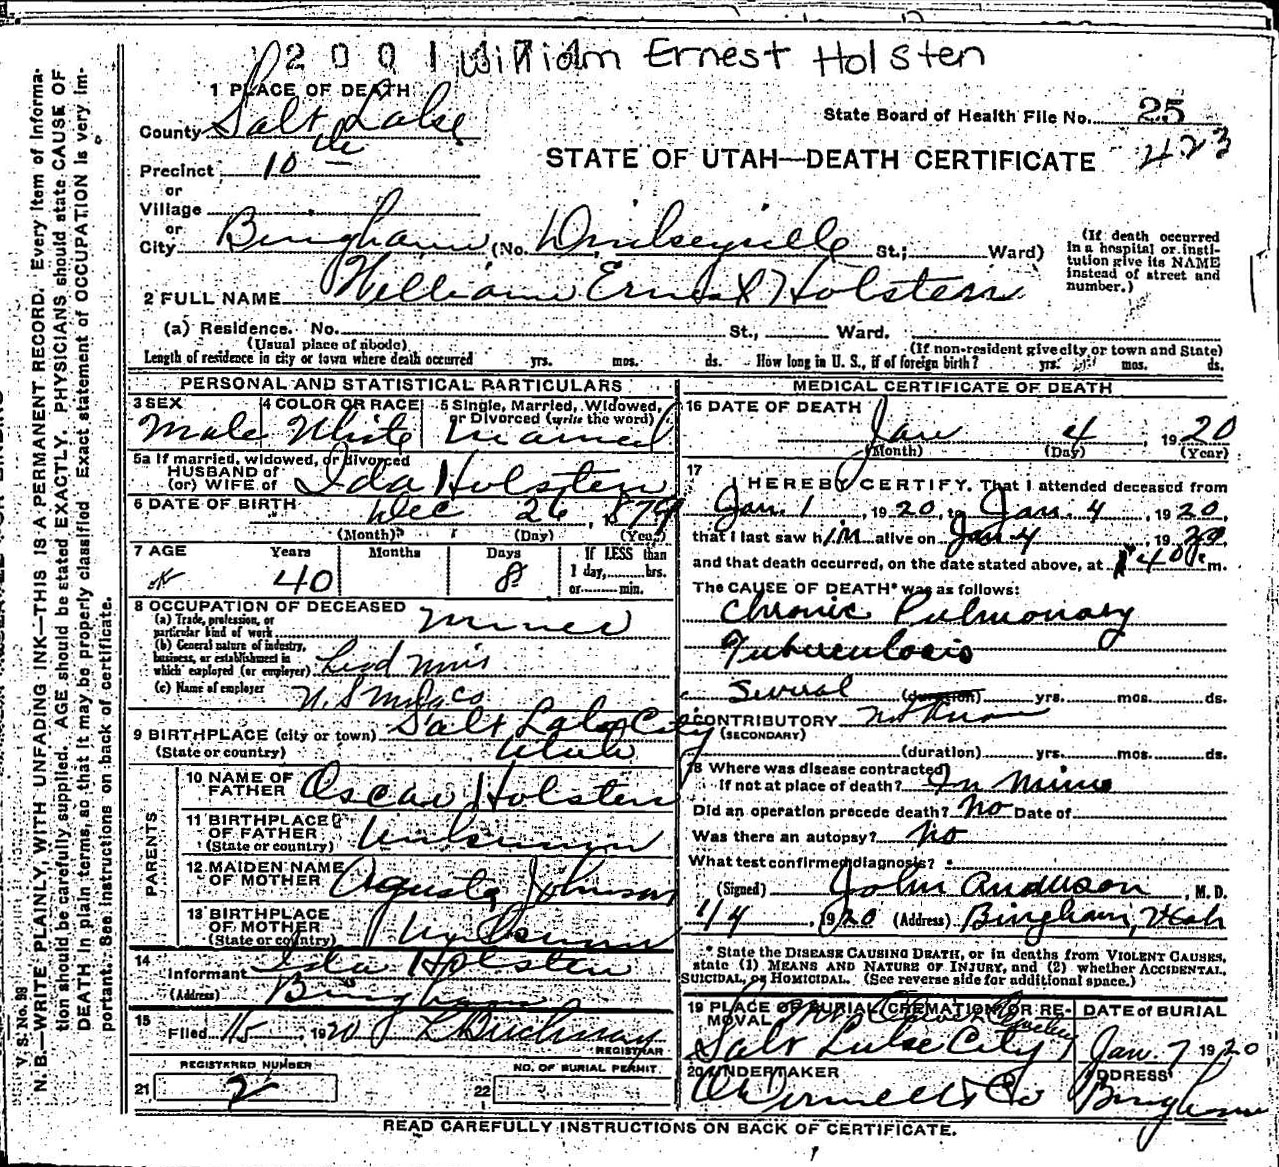 2001 William Ernest Holsten
1 PLACE OF DEATH
County Salt Lake
State Board of Health File No. 25
423
Precinct 10th
STATE OF UTAH—DEATH CERTIFICATE
or
Village
or
City Bingham (No. St.; Ward)
(If death occurred in a hospital or institution give its NAME instead of street and number.)
2 FULL NAME William Ernest Holsten
(a) Residence. No. St., Ward.
(Usual place of abode) (If non-resident give city or town and State)
Length of residence in city or town where death occurred yrs. mos. ds. How long in U. S., if of foreign birth? yrs. mos. ds.
PERSONAL AND STATISTICAL PARTICULARS
3 SEX Male
4 COLOR OR RACE White
5 Single, Married, Widowed, or Divorced (write the word) Married
5a If married, widowed, or divorced
HUSBAND of
(or) WIFE of Ida Holsten
6 DATE OF BIRTH Dec 26, 1879
(Month) (Day) (Year)
7 AGE Years 40 Months Days 8 If LESS than 1 day, hrs. or min.
8 OCCUPATION OF DECEASED
(a) Trade, profession, or particular kind of work Miner
(b) General nature of industry, business, or establishment in which employed (or employer) Lead
(c) Name of employer
9 BIRTHPLACE (city or town) Salt Lake City
(State or country) Utah
PARENTS
10 NAME OF FATHER Oscar Holsten
11 BIRTHPLACE OF FATHER (State or country) Unknown
12 MAIDEN NAME OF MOTHER Agusta Johnson
13 BIRTHPLACE OF MOTHER (State or country) Unknown
14
Informant Ida Holsten
(Address) Bingham
15
Filed 1/5, 1920
REGISTRAR
REGISTERED NUMBER
21 2
NO. OF BURIAL PERMIT
22
MEDICAL CERTIFICATE OF DEATH
16 DATE OF DEATH Jan 4, 1920
(Month) (Day) (Year)
17
I HEREBY CERTIFY, That I attended deceased from
Jan. 1, 1920, to Jan. 4, 1920,
that I last saw him alive on Jan 4, 1920,
and that death occurred, on the date stated above, at m.
The CAUSE OF DEATH* was as follows:
Chronic Pulmonary
Tuberculosis
Several (duration) yrs. mos. ds.
CONTRIBUTORY
(SECONDARY)
(duration) yrs. mos. ds.
18 Where was disease contracted
If not at place of death? In Mines
Did an operation precede death? No Date of
Was there an autopsy? No
What test confirmed diagnosis?
(Signed) John Anderson, M. D.
1/4, 1920 (Address) Bingham, Utah
* State the DISEASE CAUSING DEATH, or in deaths from VIOLENT CAUSES, state (1) MEANS AND NATURE OF INJURY, and (2) whether ACCIDENTAL, SUICIDAL, or HOMICIDAL. (See reverse side for additional space.)
19 PLACE OF BURIAL, CREMATION OR REMOVAL
Salt Lake City
DATE of BURIAL
Jan. 7 1920
20 UNDERTAKER
& Co
ADDRESS
Bingham
READ CAREFULLY INSTRUCTIONS ON BACK OF CERTIFICATE.
V. S. No. 98
N. B.—WRITE PLAINLY, WITH UNFADING INK—THIS IS A PERMANENT RECORD. Every item of information should be carefully supplied. AGE should be stated EXACTLY. PHYSICIANS should state CAUSE OF DEATH in plain terms, so that it may be properly classified. Exact statement of OCCUPATION is very important. See instructions on back of certificate.